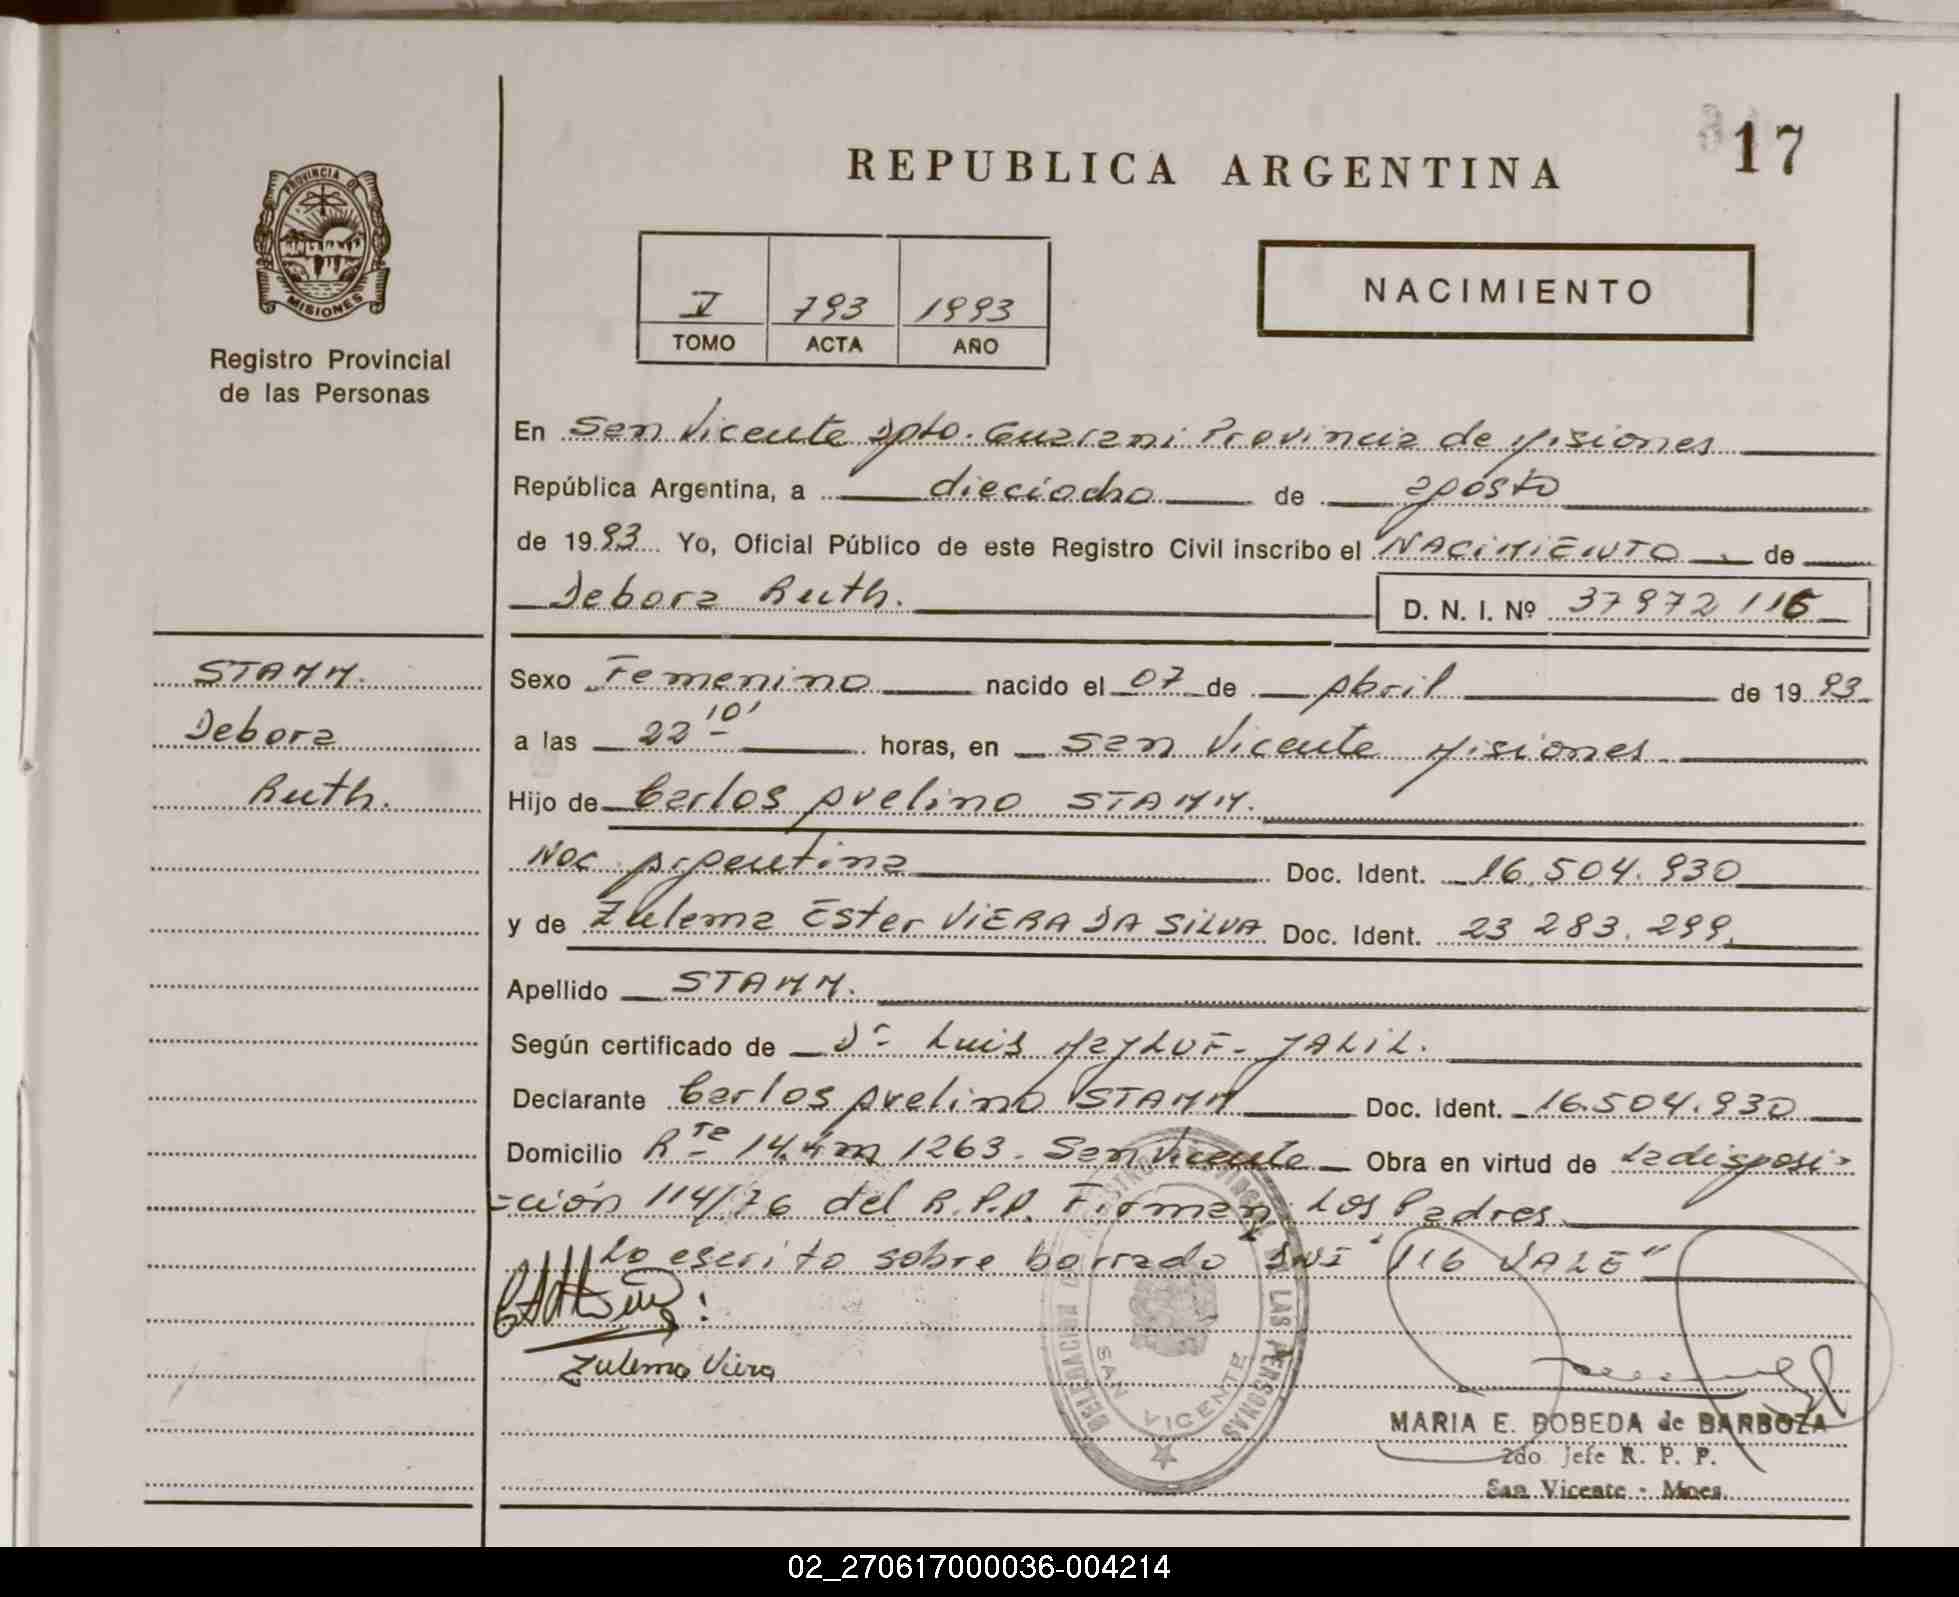 17
REPUBLICA ARGENTINA
PROVINCIA DE
MISIONES
Registro Provincial
de las Personas
V 793 1993
TOMO ACTA AÑO
NACIMIENTO
En San Vicente Dpto. Guarani Provincia de Misiones
República Argentina, a dieciocho de agosto
de 1993 Yo, Oficial Público de este Registro Civil inscribo el NACIMIENTO de
Debora Ruth. D. N. I. Nº 37972116
STAMM.
Debora
Ruth.
Sexo Femenino nacido el 07 de Abril de 1993
a las 22 10' horas, en San Vicente Misiones
Hijo de Carlos Avelino STAMM.
Nac. Argentina Doc. Ident. 16.504.930
y de Zulema Ester VIERA DA SILVA Doc. Ident. 23 283.299.
Apellido STAMM.
Según certificado de Dr Luis JALIL.
Declarante Carlos Avelino STAMM Doc. Ident. 16.504.930
Domicilio Rta 14. Km 1263. San Vicente Obra en virtud de la disposi-
-ción 114/76 del R.P.P. Firman: Los Padres
Lo escrito sobre borrado DNI "116 VALE"
Zulema Viera
DELEGACION REGISTRO PROVINCIAL DE LAS PERSONAS
SAN VICENTE
MARIA E. BOBEDA de BARBOZA
2do Jefe R. P. P.
San Vicente - Mnes.
02_270617000036-004214